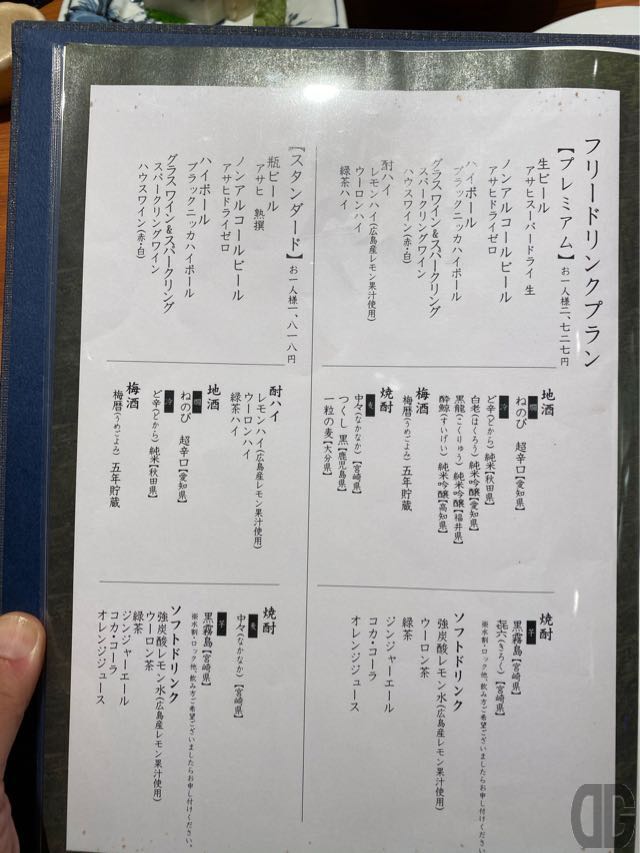 フリードリンクプラン
【プレミアム】お一人様二、七二七円
生ビール
アサヒスーパードライ 生
ノンアルコールビール
アサヒドライゼロ
ハイボール
ブラックニッカハイボール
グラスワイン&スパークリング
スパークリングワイン
ハウスワイン(赤・白)
酎ハイ
レモンハイ(広島産レモン果汁使用)
ウーロンハイ
緑茶ハイ
地酒
燗
ねのび 超辛口【愛知県】
冷
ど辛(どから) 純米【秋田県】
白老(はくろう) 純米吟醸【愛知県】
黒龍(こくりゅう) 純米吟醸【福井県】
酔鯨(すいげい) 純米吟醸【高知県】
梅酒
梅暦(うめごよみ) 五年貯蔵
焼酎
麦
中々(なかなか)【宮崎県】
つくし 黒【鹿児島県】
一粒の麦【大分県】
焼酎
芋
黒霧島【宮崎県】
㐂六(きろく)【宮崎県】
※水割・ロック他、飲み方ご希望ございましたらお申し付けください。
ソフトドリンク
強炭酸レモン水(広島産レモン果汁使用)
ウーロン茶
緑茶
ジンジャーエール
コカ・コーラ
オレンジジュース
【スタンダード】お一人様一、八一八円
瓶ビール
アサヒ 熟撰
ノンアルコールビール
アサヒドライゼロ
ハイボール
ブラックニッカハイボール
グラスワイン&スパークリング
スパークリングワイン
ハウスワイン(赤・白)
酎ハイ
レモンハイ(広島産レモン果汁使用)
ウーロンハイ
緑茶ハイ
地酒
燗
ねのび 超辛口【愛知県】
冷
ど辛(どから) 純米【秋田県】
梅酒
梅暦(うめごよみ) 五年貯蔵
焼酎
麦
中々(なかなか)【宮崎県】
芋
黒霧島【宮崎県】
※水割・ロック他、飲み方ご希望ございましたらお申し付けください。
ソフトドリンク
強炭酸レモン水(広島産レモン果汁使用)
ウーロン茶
緑茶
ジンジャーエール
コカ・コーラ
オレンジジュース